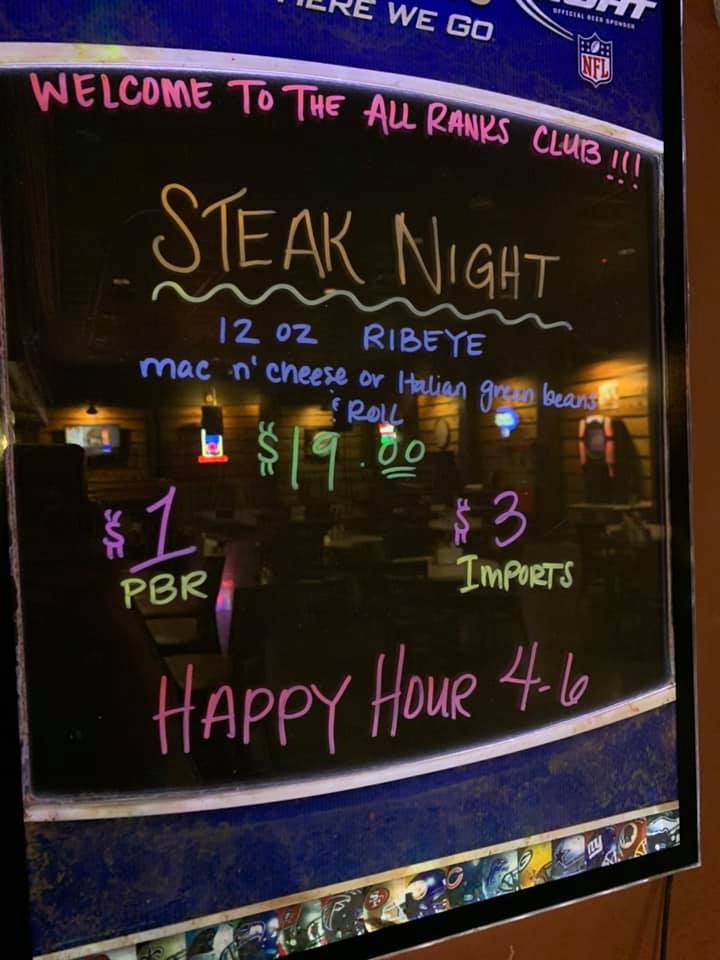 HERE WE GO
OFFICIAL BEER SPONSOR
NFL
WELCOME TO THE ALL RANKS CLUB!!!
STEAK NIGHT
12 OZ RIBEYE
mac n' cheese or Italian green beans
& ROLL
$19.00
$1 $3
PBR IMPORTS
HAPPY HOUR 4-6